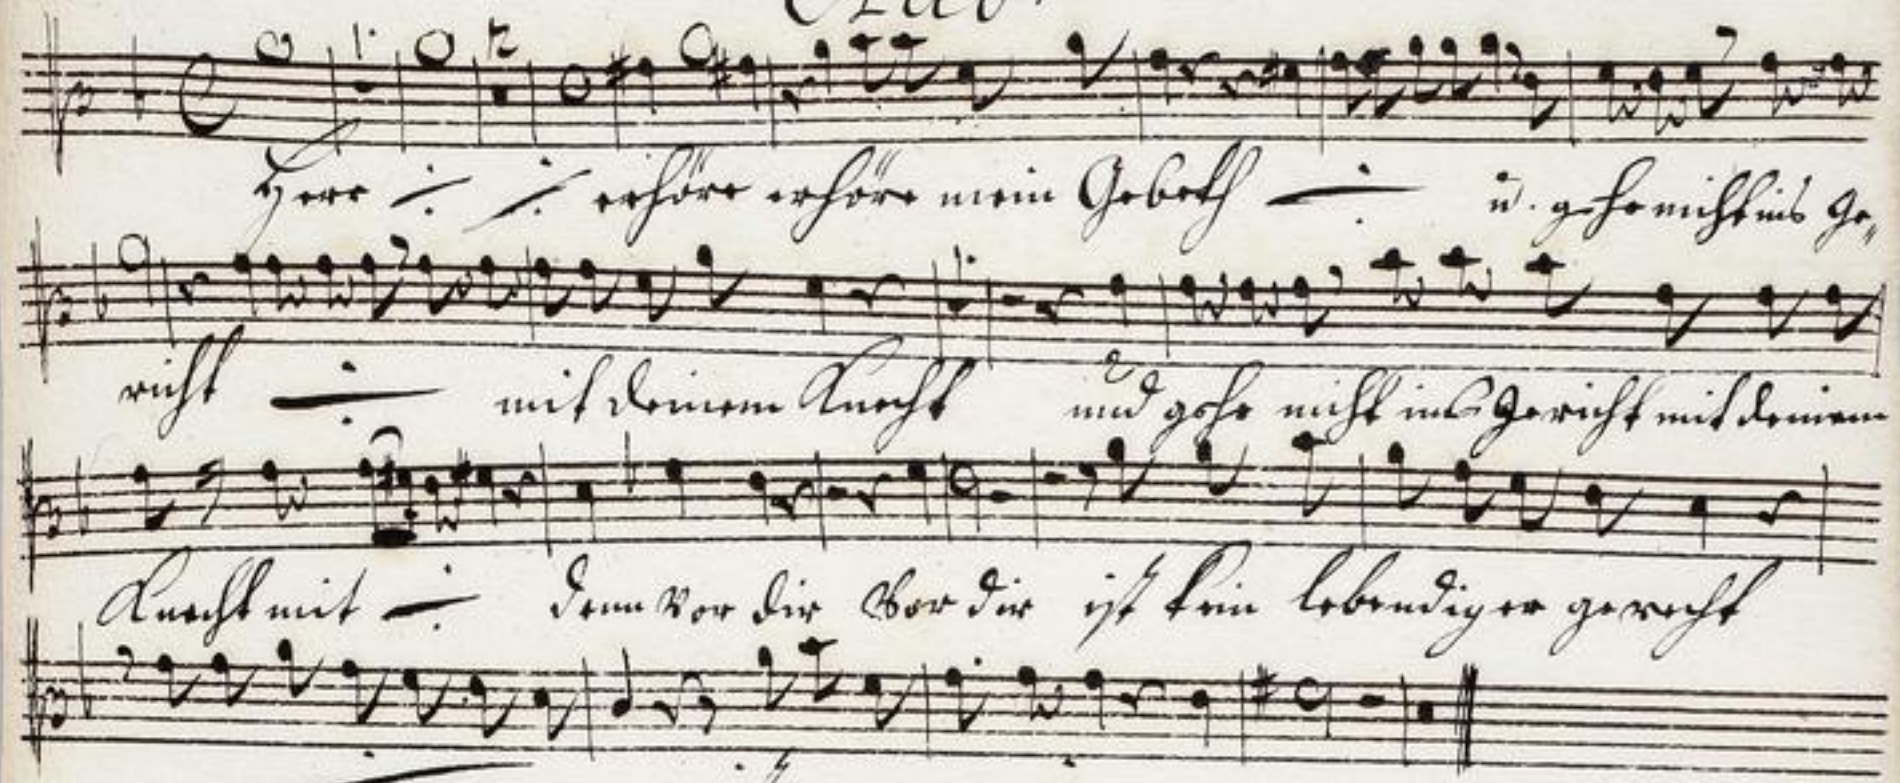 Herr ·/. ·/. erhöre erhöre mein Gebeth ·/. u. gehe nicht ins Ge„
richt ·/. mit deinem Knecht und gehe nicht ins Gericht mit deinem
Knecht mit ·/. denn vor dir vor dir ist kein lebendiger gerecht